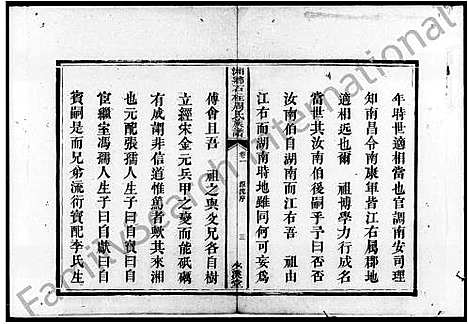 年時世適相當也官調南安司理
知南昌令南康年皆江右屬郡地
適相近也爾　祖博學力行成名
當世其汝南伯後嗣乎予曰否否
汝南伯自湖南而江右吾　祖由
江右而湖南時地雖同何可妄為
湘鄉石柱周氏族譜
卷二
三
永濂堂
傅會且吾　祖之與支兄各自樹
立經宋金元兵甲之變而能砥礪
有成謂非信道惟篤者歟其來湘
也元配張孺人生子曰自貴自
官繼室馮孺人生子曰自獻自
賓嗣是而兄弟流衍賓配李氏生
FamilySearch International